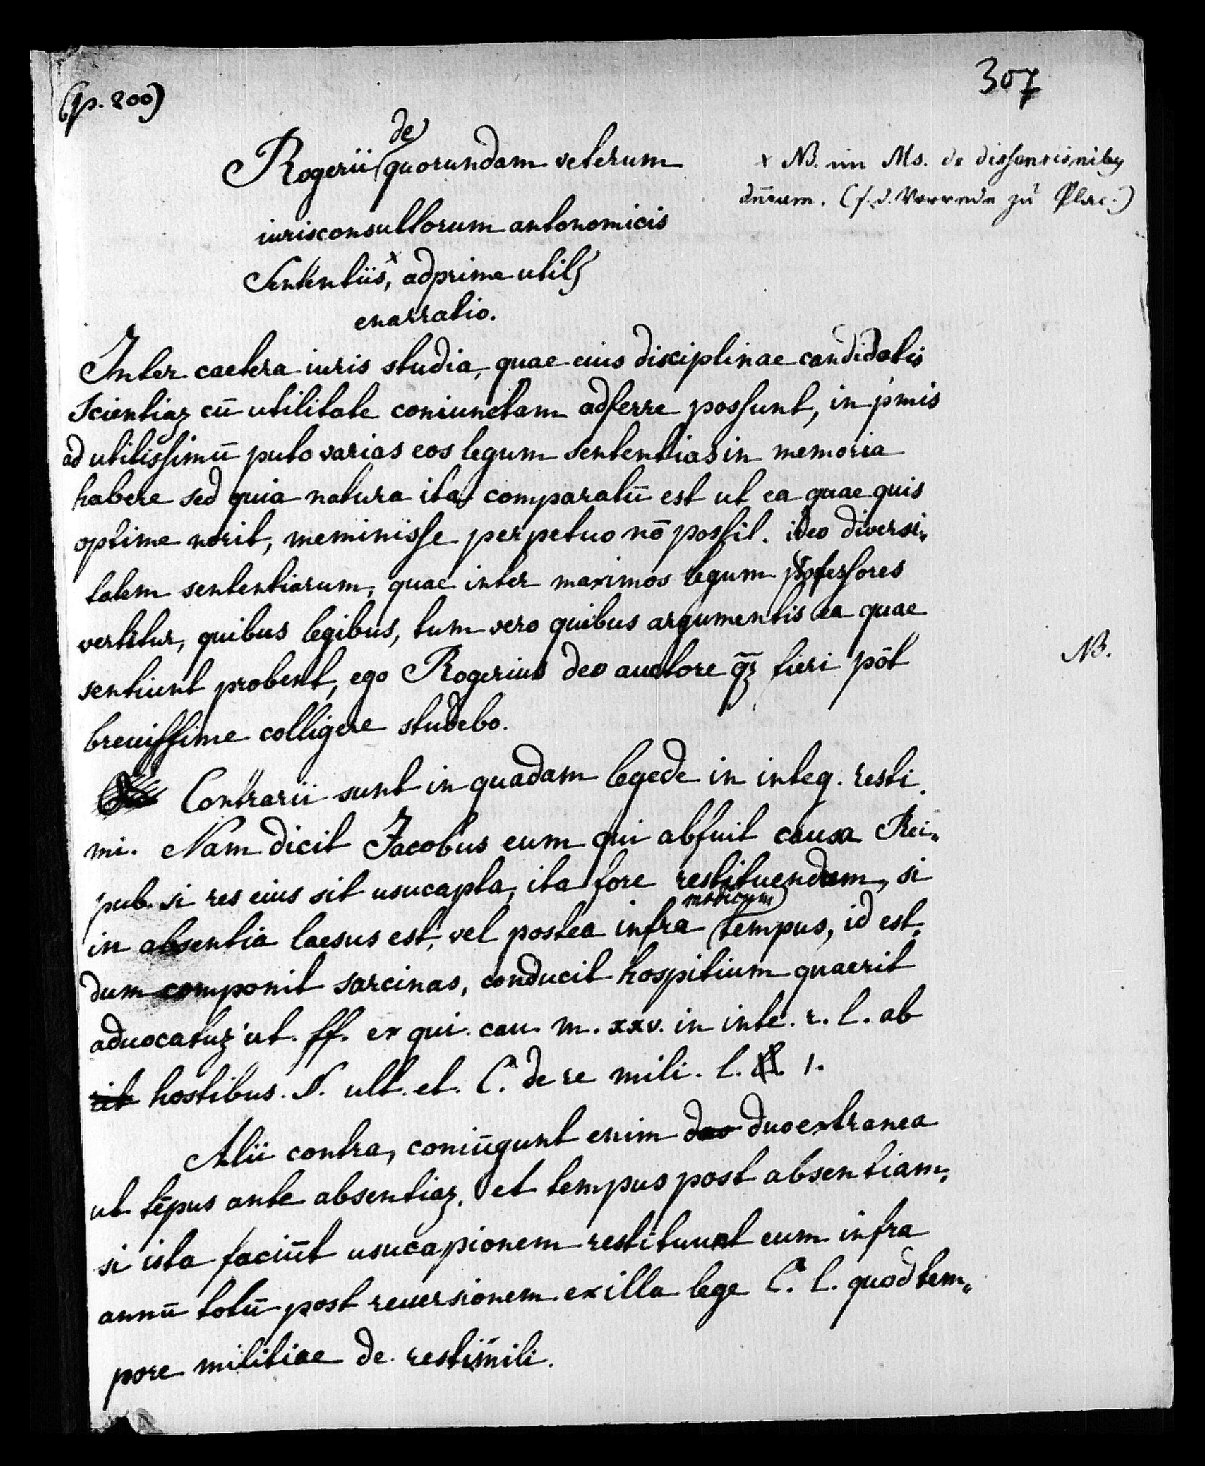 307
(p. 200)
Rogerii de quorundam veterum
iurisconsultorum antonomicis
Sententiis,ˣ adprime utilꝭ
enarratio.
x NB. im Ms. de dissensionibꝫ
dñrum. (s. d. Vorrede zu Plac.)
Inter caetera iuris studia, quae eius disciplinae candidatis
Scientiaꝫ cū utilitate coniunctam adferre possunt, in p'mis
ad utilissimū puto varias eos legum sententias in memoria
habere sed quia natura ita comparatū est ut ea quae quis
optime norit, meminisse perpetuo nō possit. ideo diversi-
tatem sententiarum, quae inter maximos legum professores
vertitur, quibus legibus, tum vero quibus argumentis ea quae
sentiunt probent, ego Rogerius deo auctore q̄ꝫ fieri pōt
NB.
breuissime colligere studebo.
Contrarii sunt in quadam lege de in integ. resti.
mi. Nam dicit Jacobus eum qui abfuit causa Rei-
pub. si res eius sit usucapta, ita fore restituendam, si
in absentia laesus est, vel postea infra modicum tempus, id est,
dum componit sarcinas, conducit hospitium quaerit
aduocatuꝫ ut. ff. ex qui. cau. m. xxv. in inte. r. l. ab
hostibus. §. ult. et. C. de re mili. l. 1.
Alii contra, coniūgunt enim duo extranea
ut tēpus ante absentiaꝫ, et tempus post absentiam,
si ista faciūt usucapionem restituunt eum infra
annū totū post reuersionem ex illa lege C. l. quod tem-
pore militiae de restimili.